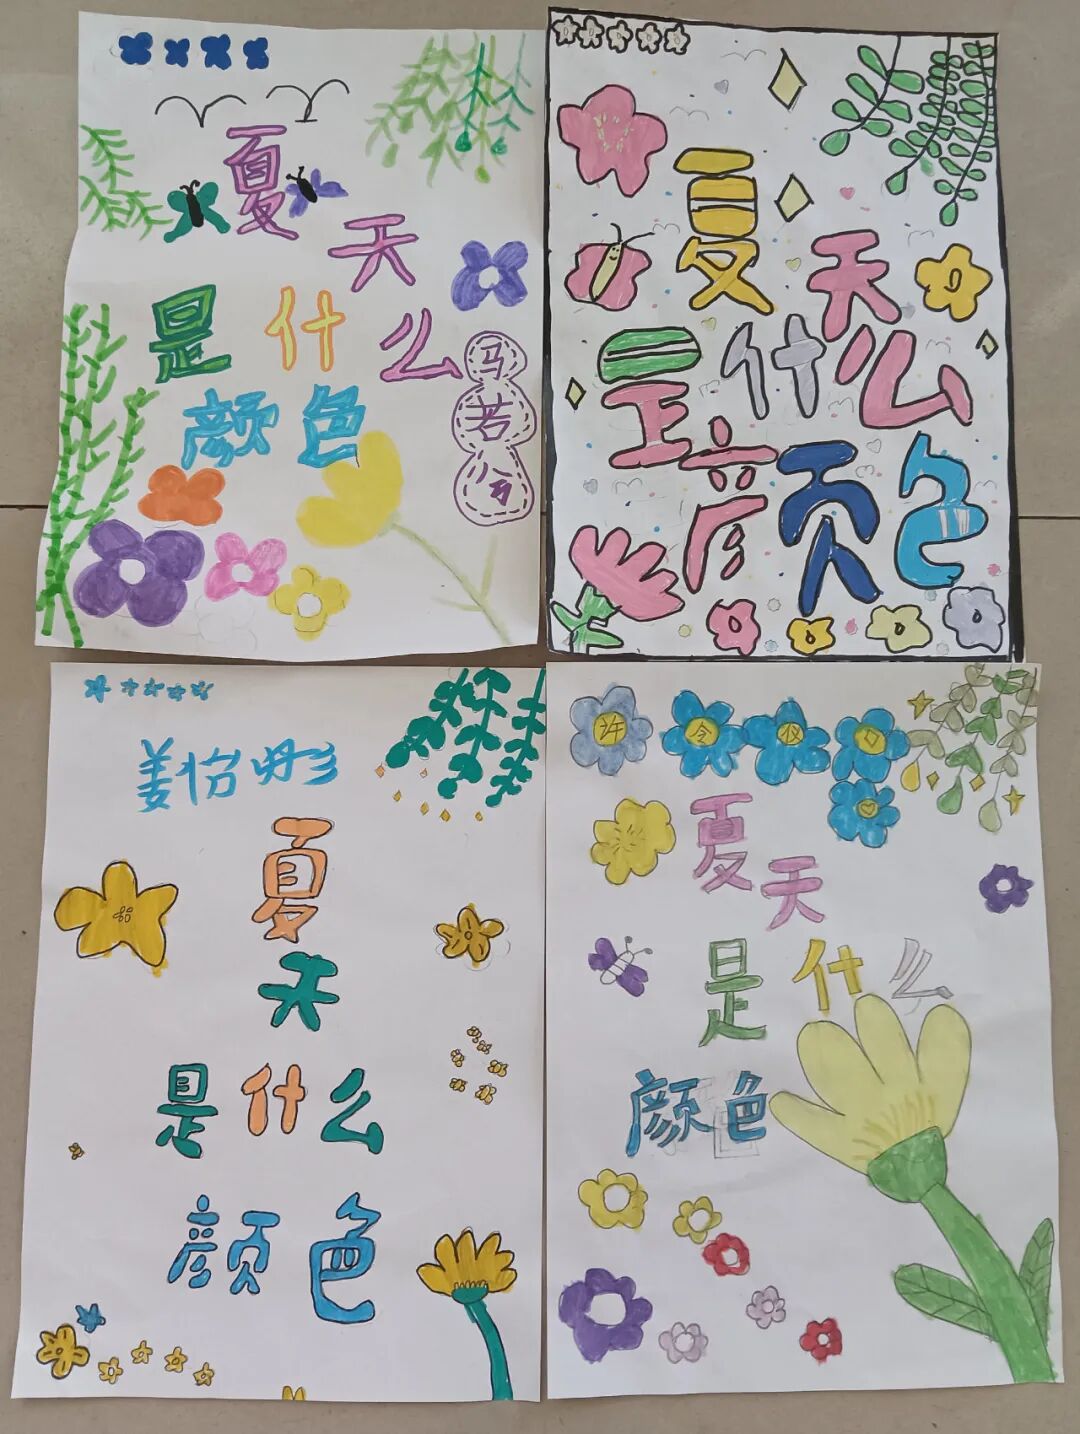 夏天
是什么
颜色
马
若
夏天
是什么
颜色
姜
夏
天
是什么
颜色
许令仪
夏天
是什么
颜色